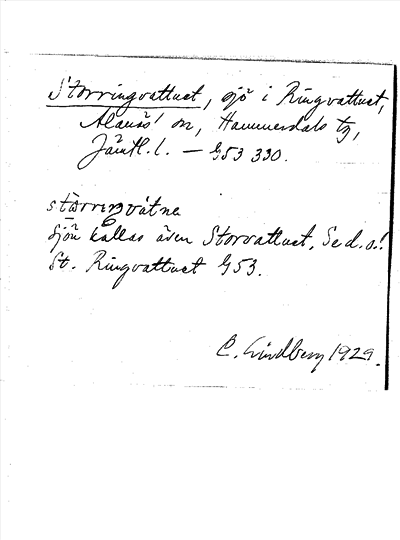 Storringvattnet, sjö i Ringvattnet,
Alanäs sn, Hammerdals tg,
Jämtl. l. — G53 330.
stòrreŋvátna
Sjön kallas även Storvattnet, Se d. o.!
St. Ringvattnet G53.
C. Lindberg 1929.